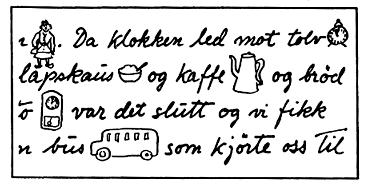 i . Da klokken led mot tolv
lapskaus og kaffe og bröd
ö var det slutt og vi fikk
n bus som kjörte oss til